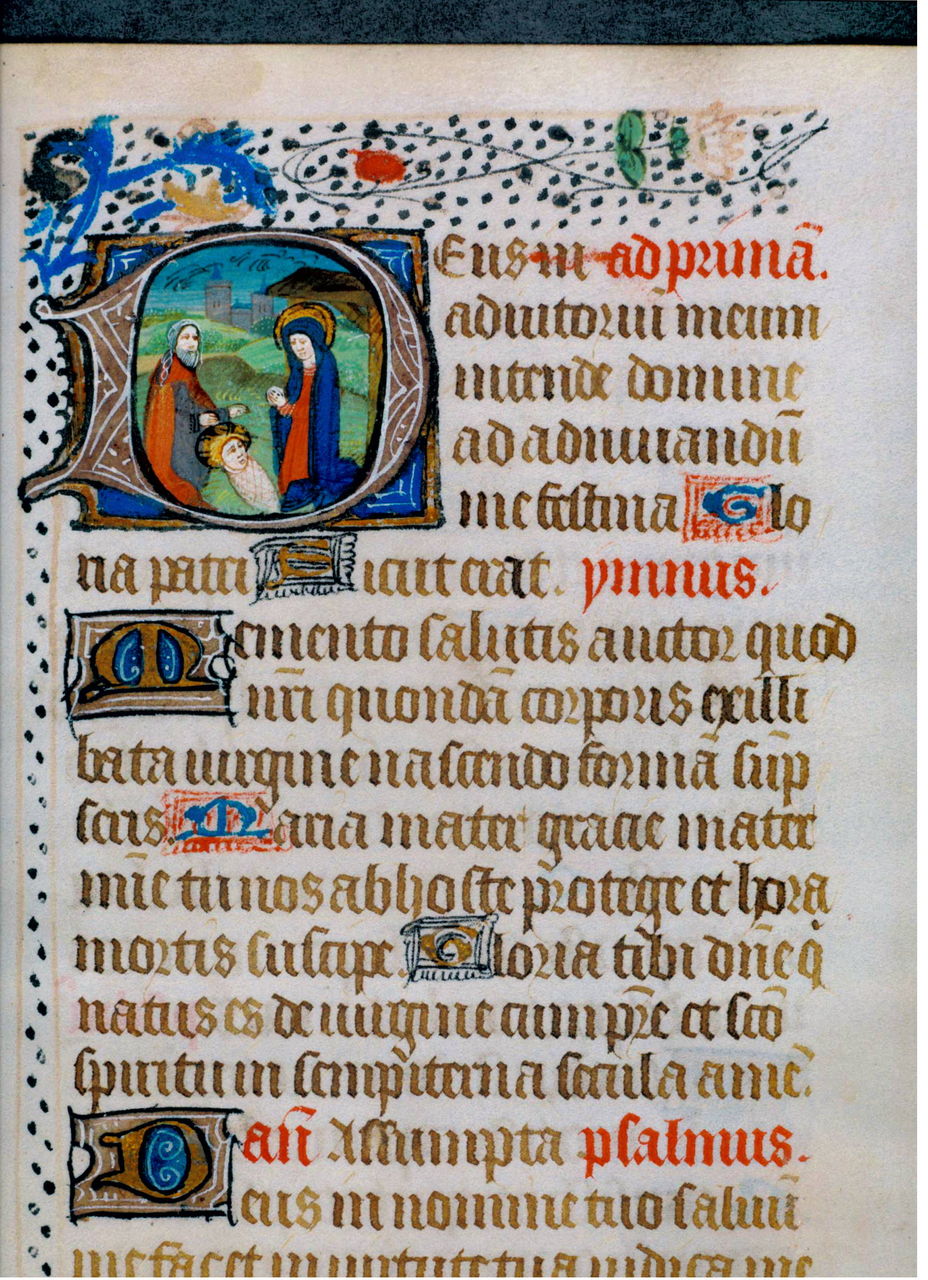 Deus in ad primā.
adiutoriū meum
intende domine
ad adiuuandū
me festina Glo
ria patri Sicut erat. ymnus.
Memento salutis auctor quod
nr̄i quondā corporis ex illi
bata uirgine nascendo formā sūp
seris. Maria mater gracie mater
mīe tu nos ab hoste protege et hora
mortis suscipe. Gloria tibi dn̄e q
natus es de uirgine cum pr̄e et sc̄o
spiritu in sempiterna secula amē.
an̄ Assumpta psalmus.
Deus in nomine tuo saluū
me fac et in uirtute tua iudica me